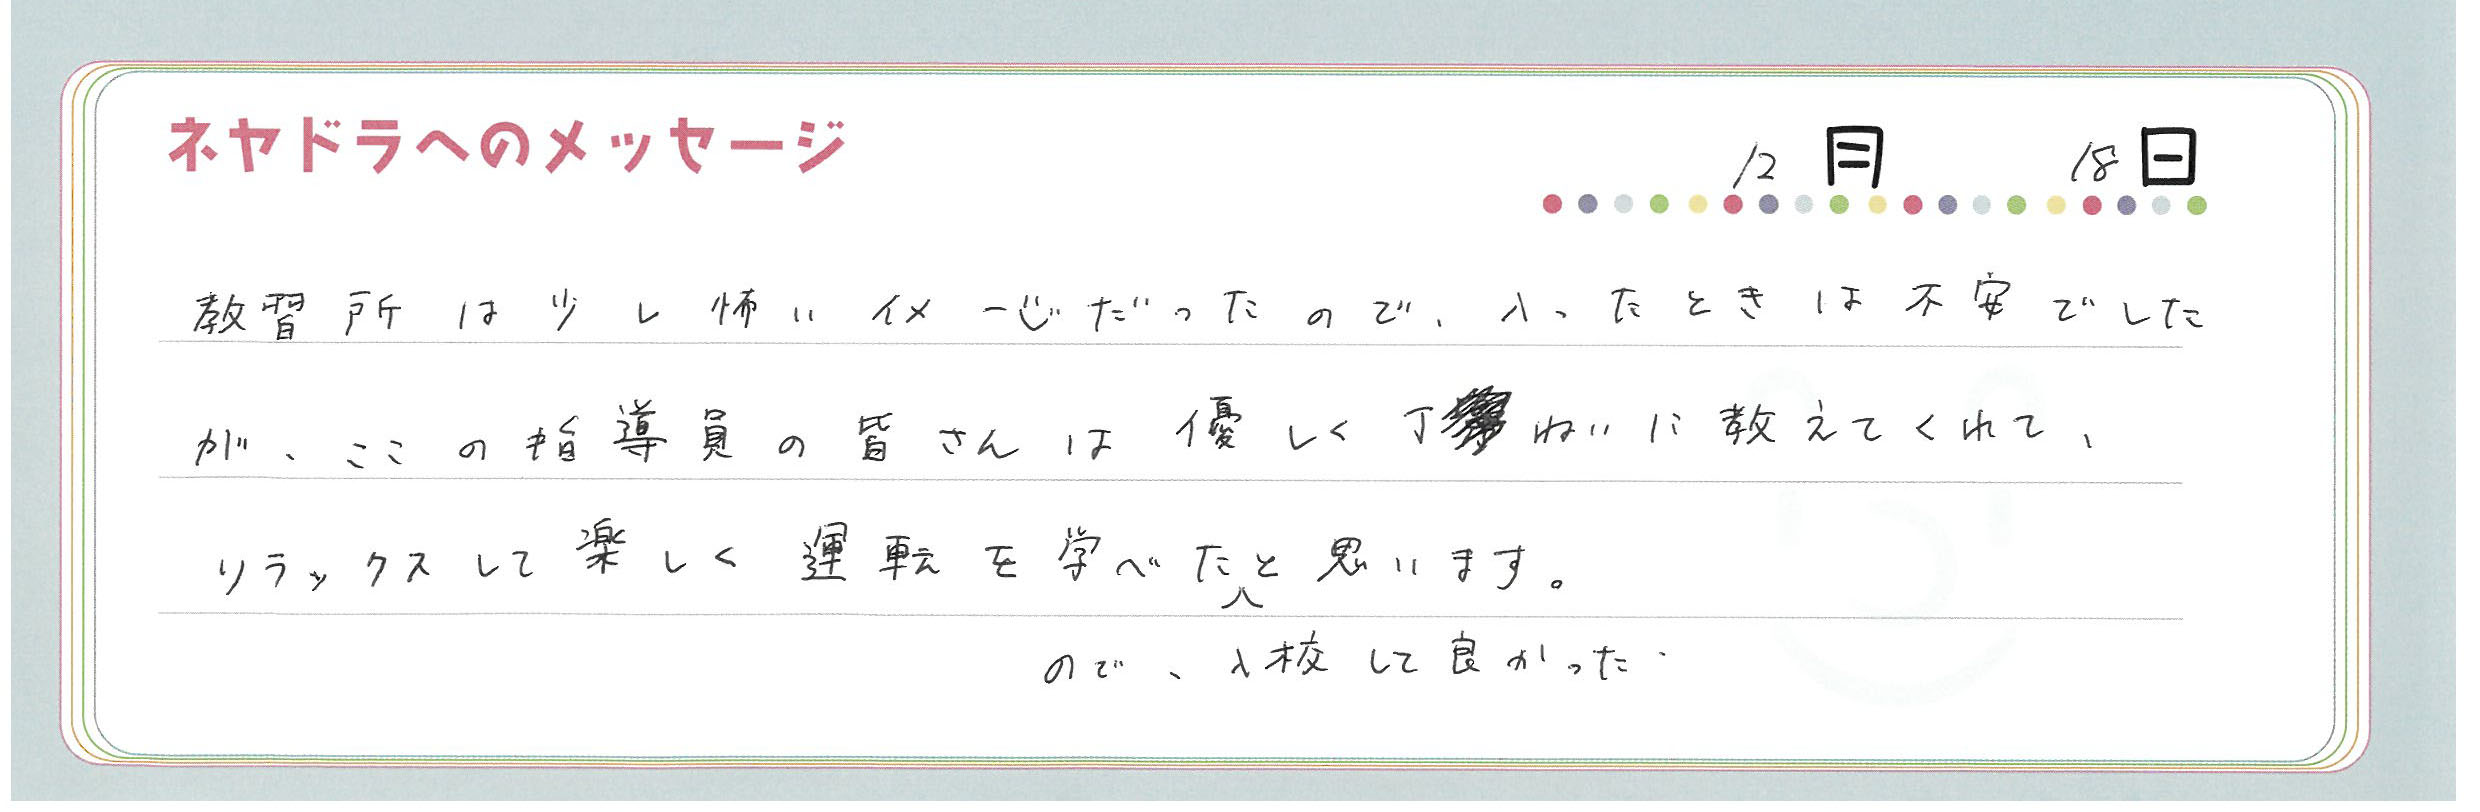 ネヤドラへのメッセージ
12月 18日
教習所は少し怖いイメージだったので、入ったときは不安でした
が、ここの指導員の皆さんは優しく丁ねいに教えてくれて、
リラックスして楽しく運転を学べたと思います。
ので、入校して良かった